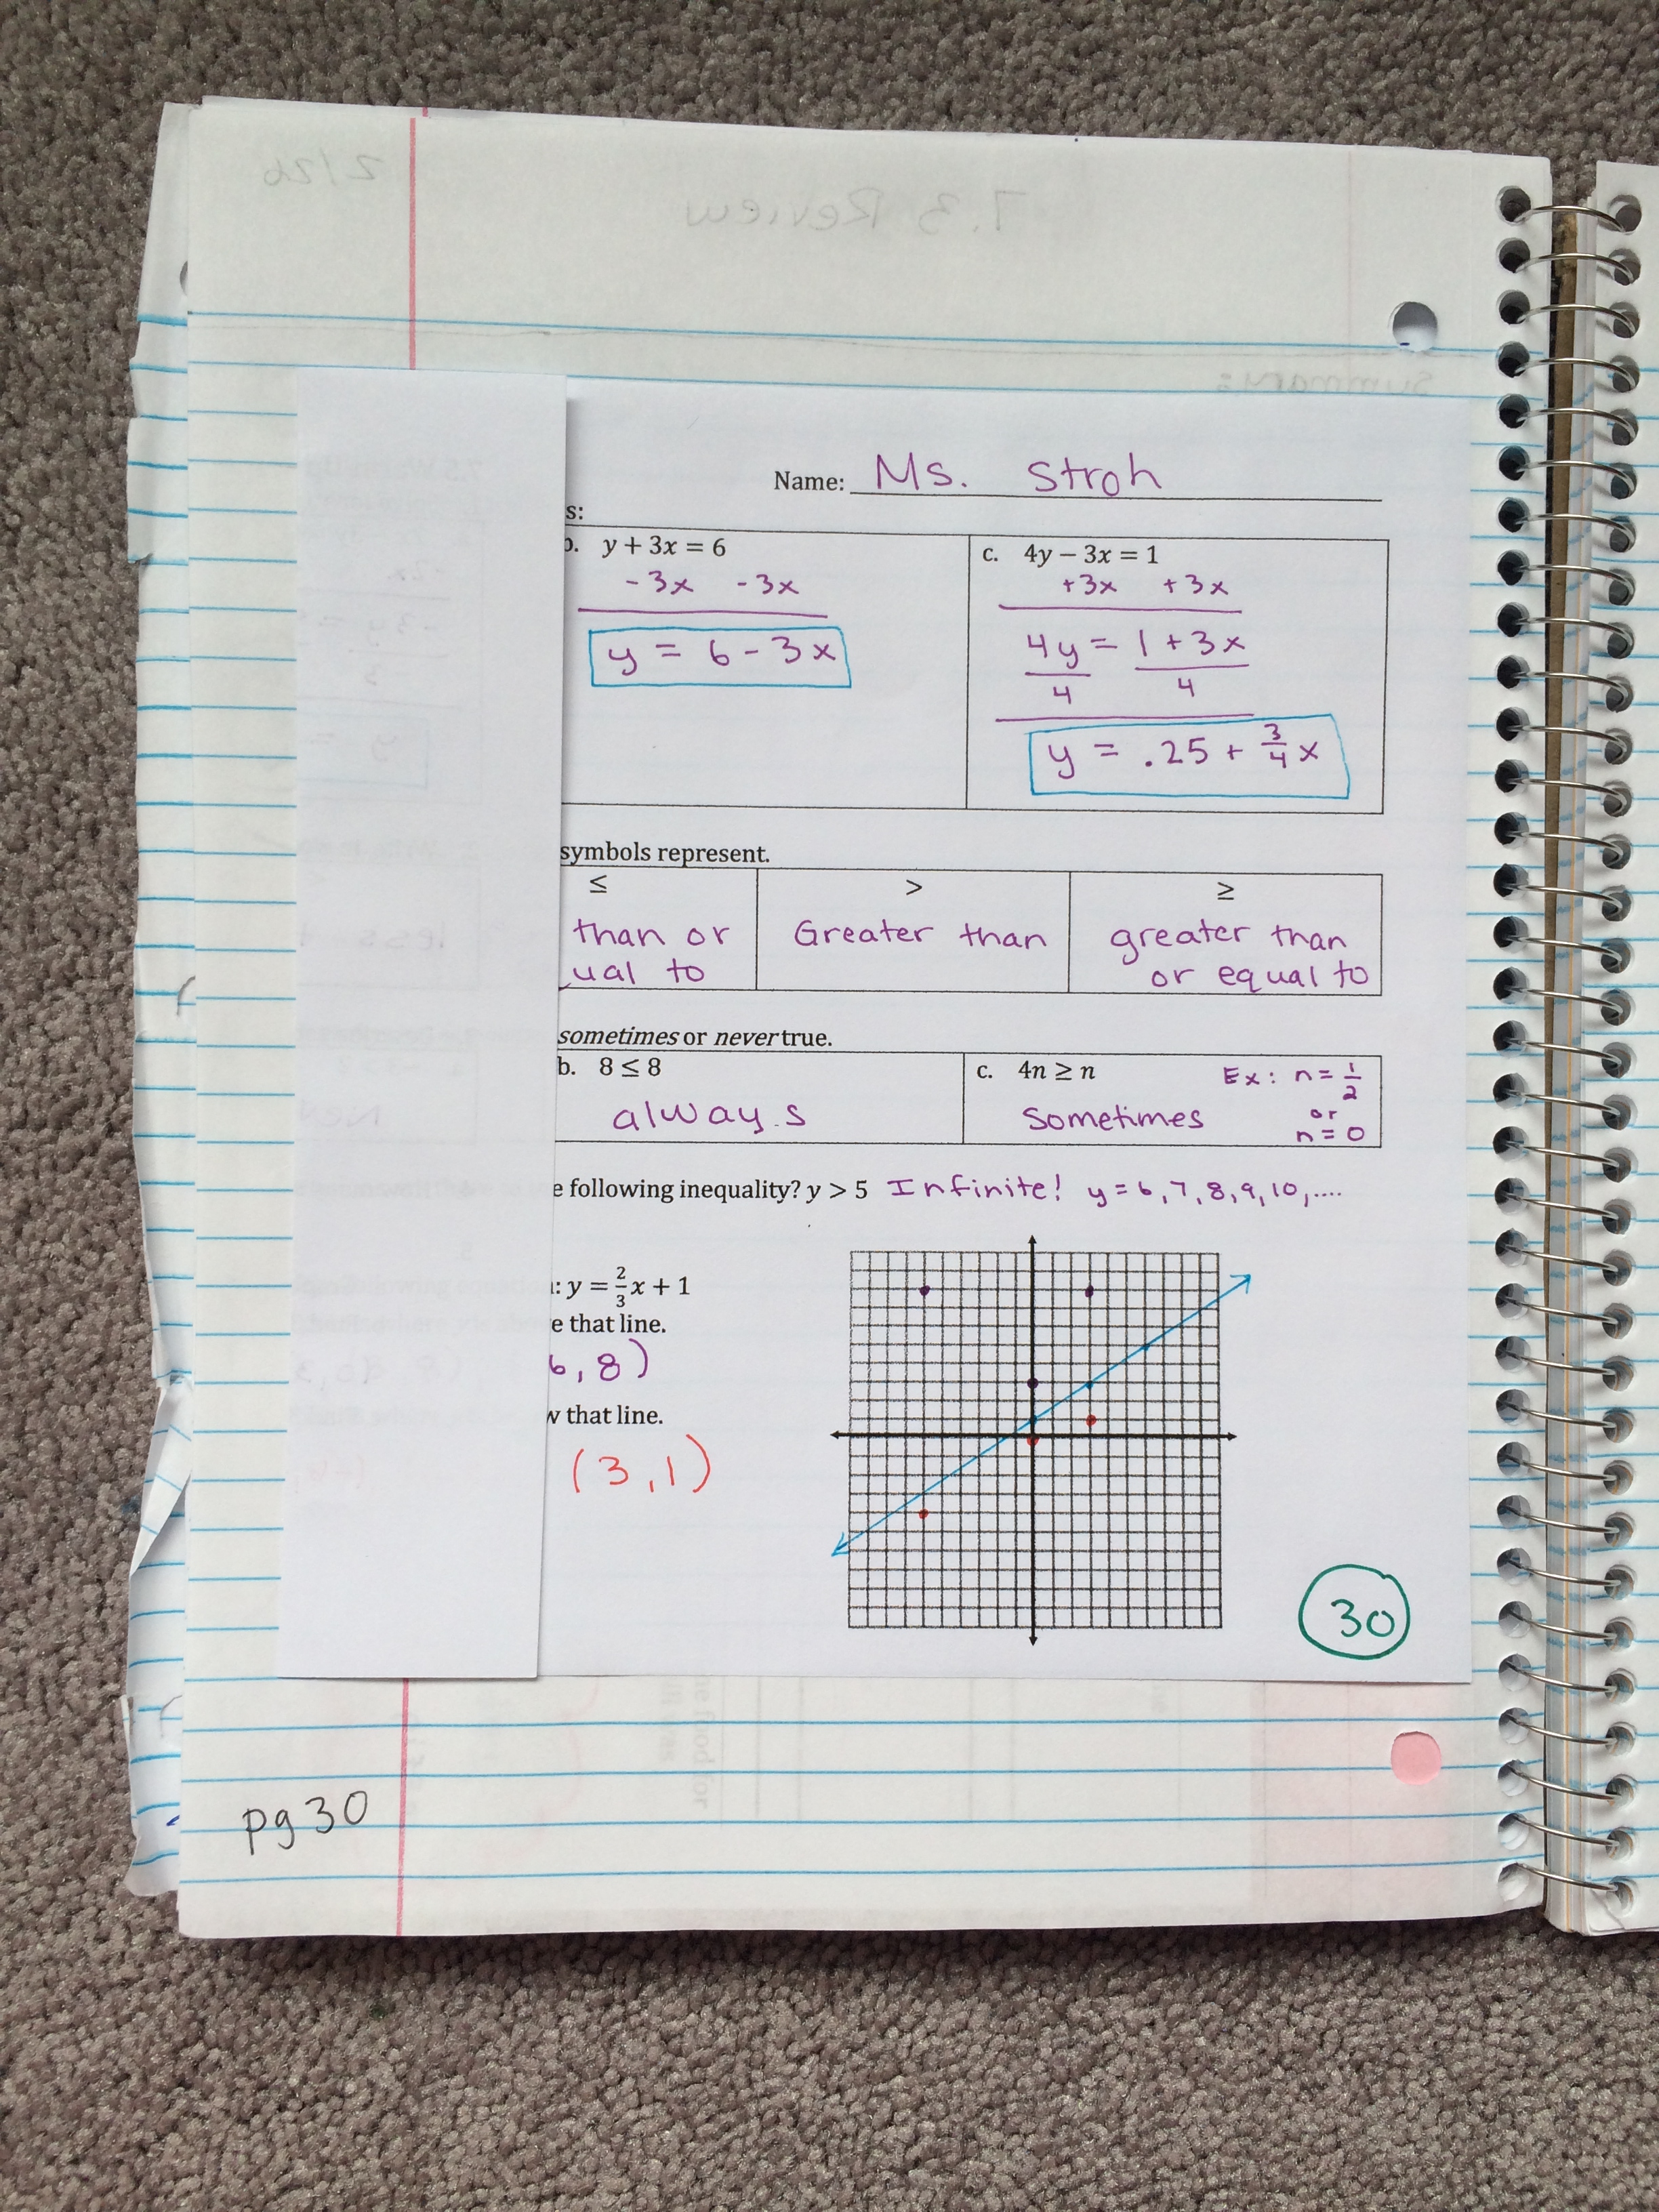 Name: Ms. Stroh
s:
b. y + 3x = 6
- 3x - 3x
y = 6 - 3x
c. 4y − 3x = 1
+3x +3x
4y = 1 + 3x
4 4
y = .25 + 3/4 x
symbols represent.
≤ > ≥
than or
ual to
Greater than
greater than
or equal to
sometimes or never true.
b. 8 ≤ 8
always
c. 4n ≥ n
Sometimes
Ex: n = 1/2
or
n = 0
e following inequality? y > 5 Infinite! y = 6, 7, 8, 9, 10, ....
: y = 2/3 x + 1
e that line.
6, 8)
w that line.
(3, 1)
30
pg 30